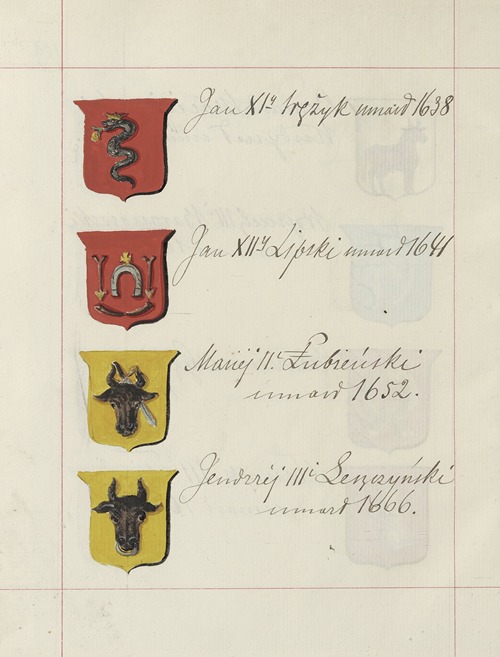 Jan XIy Wężyk umarł 1638
Jan XIIy Lipski umarł 1641
Maciej IIi Łubieński
umarł 1652.
Jendrzej IIIi Leszczyński
umarł 1666.